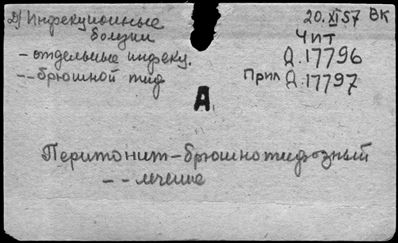 2) Инфекционные
болезни
- отдельные инфекц.
-- брюшной тиф
20.XI 57 ВК
Чит
Д.17796
Прил Д.17797
А
Перитонит-брюшнотифозный
-- лечение